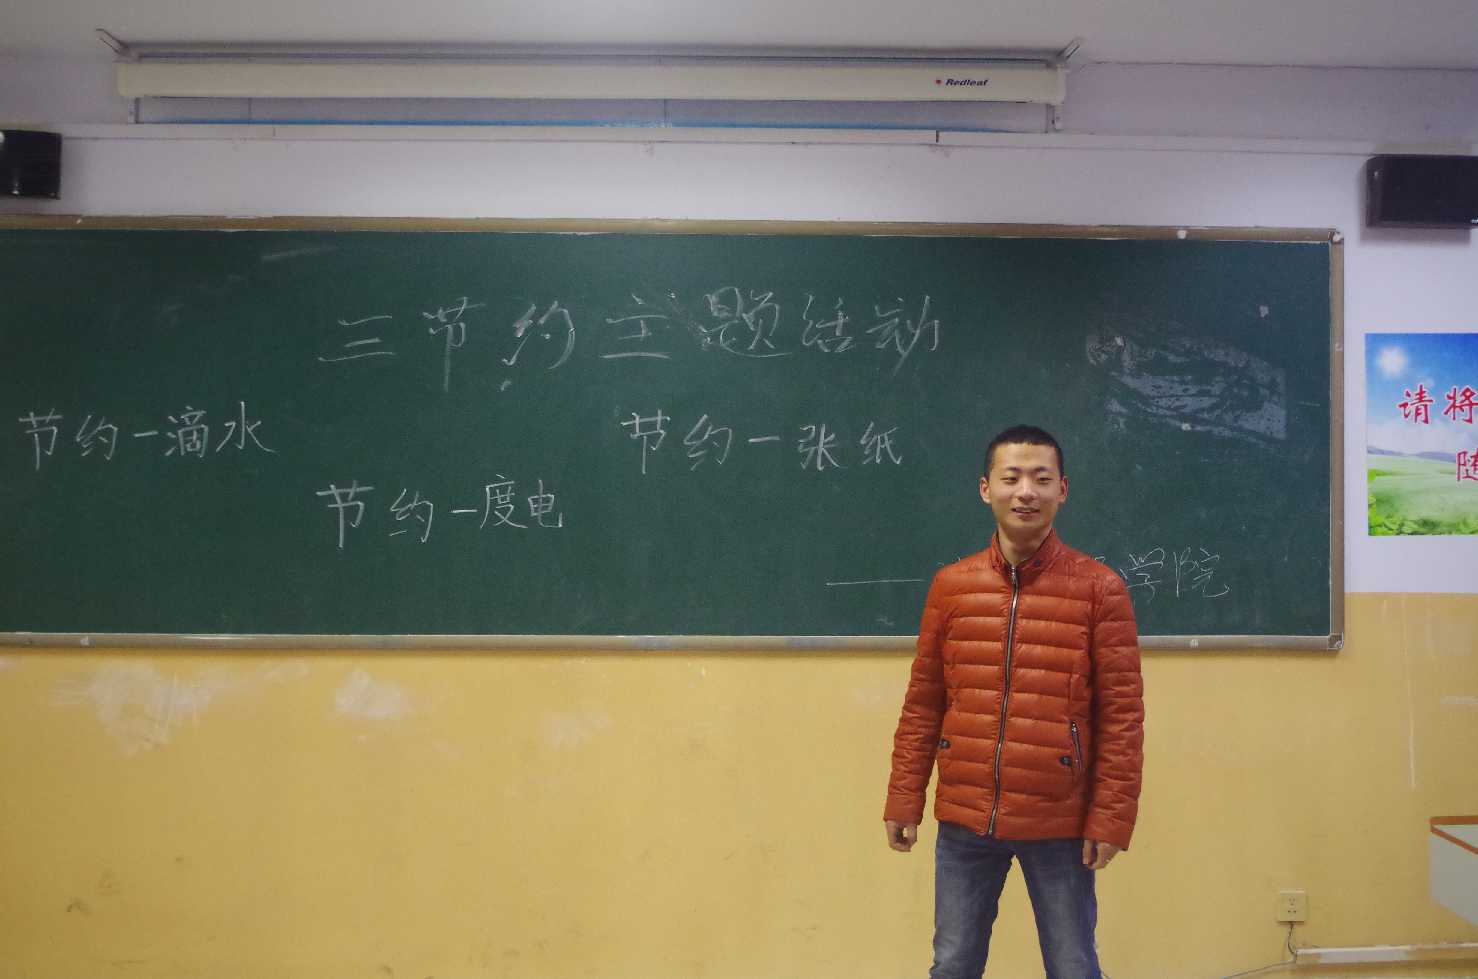 Redleaf
三节约主题活动
节约一滴水
节约一张纸
节约一度电
——学院
请将
随